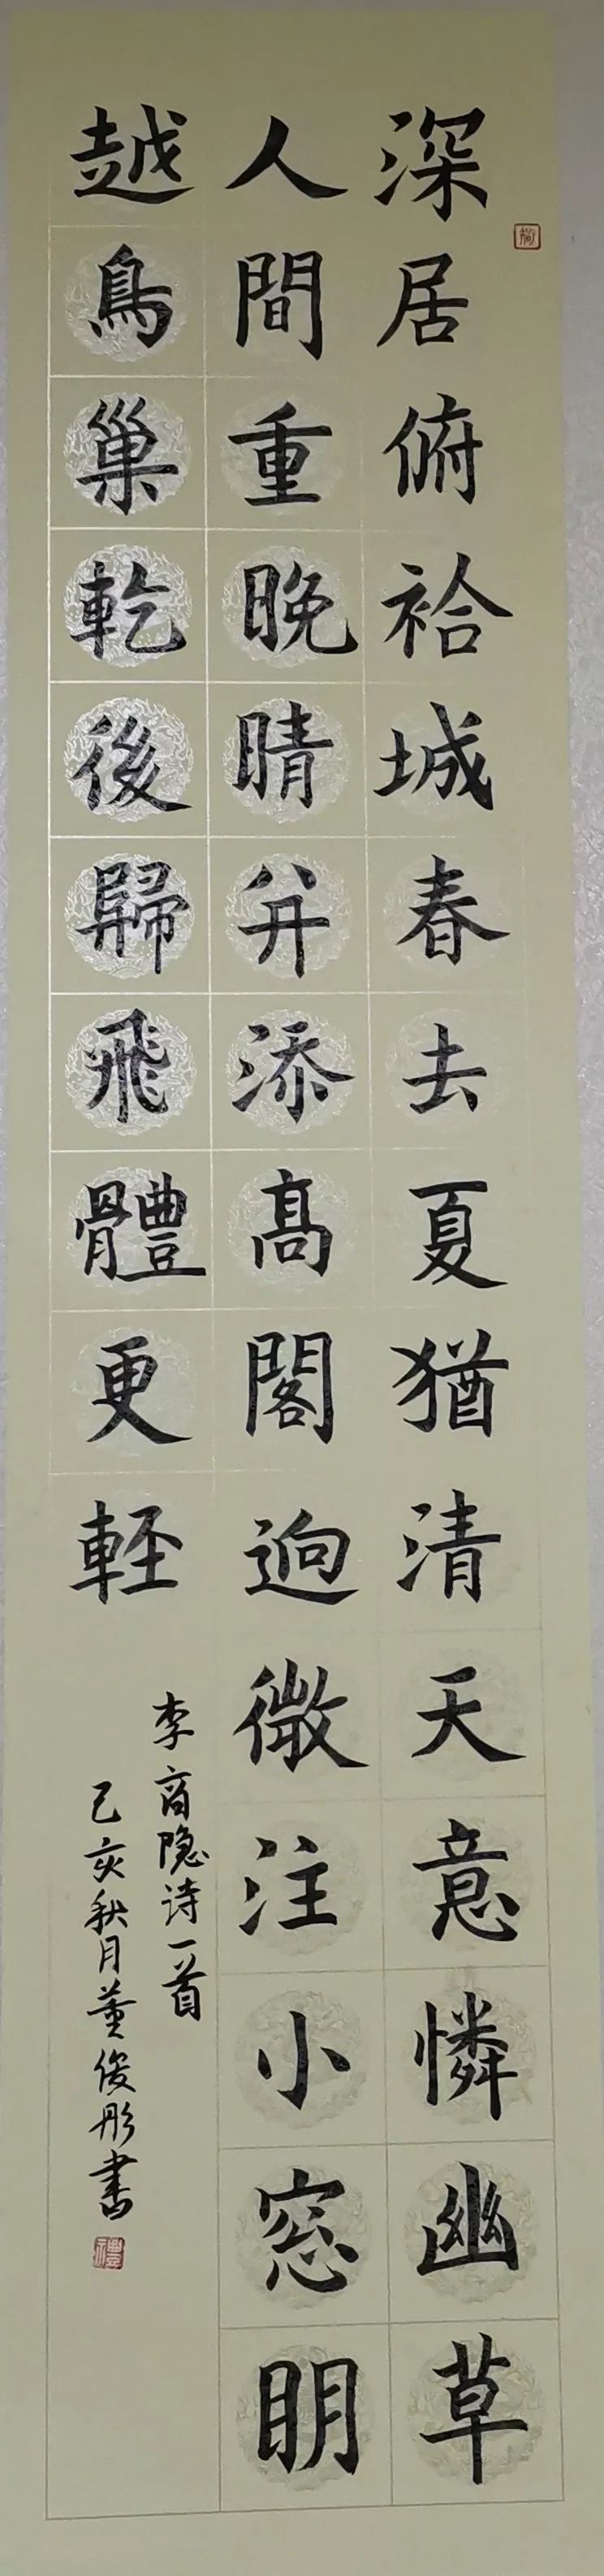 深居俯袷城春去夏猶清天意憐幽草
人間重晚晴并添髙閣逈微注小窓眀
越鳥巢乾後歸飛體更軽
李商隐诗一首
己亥秋月董俊彤書